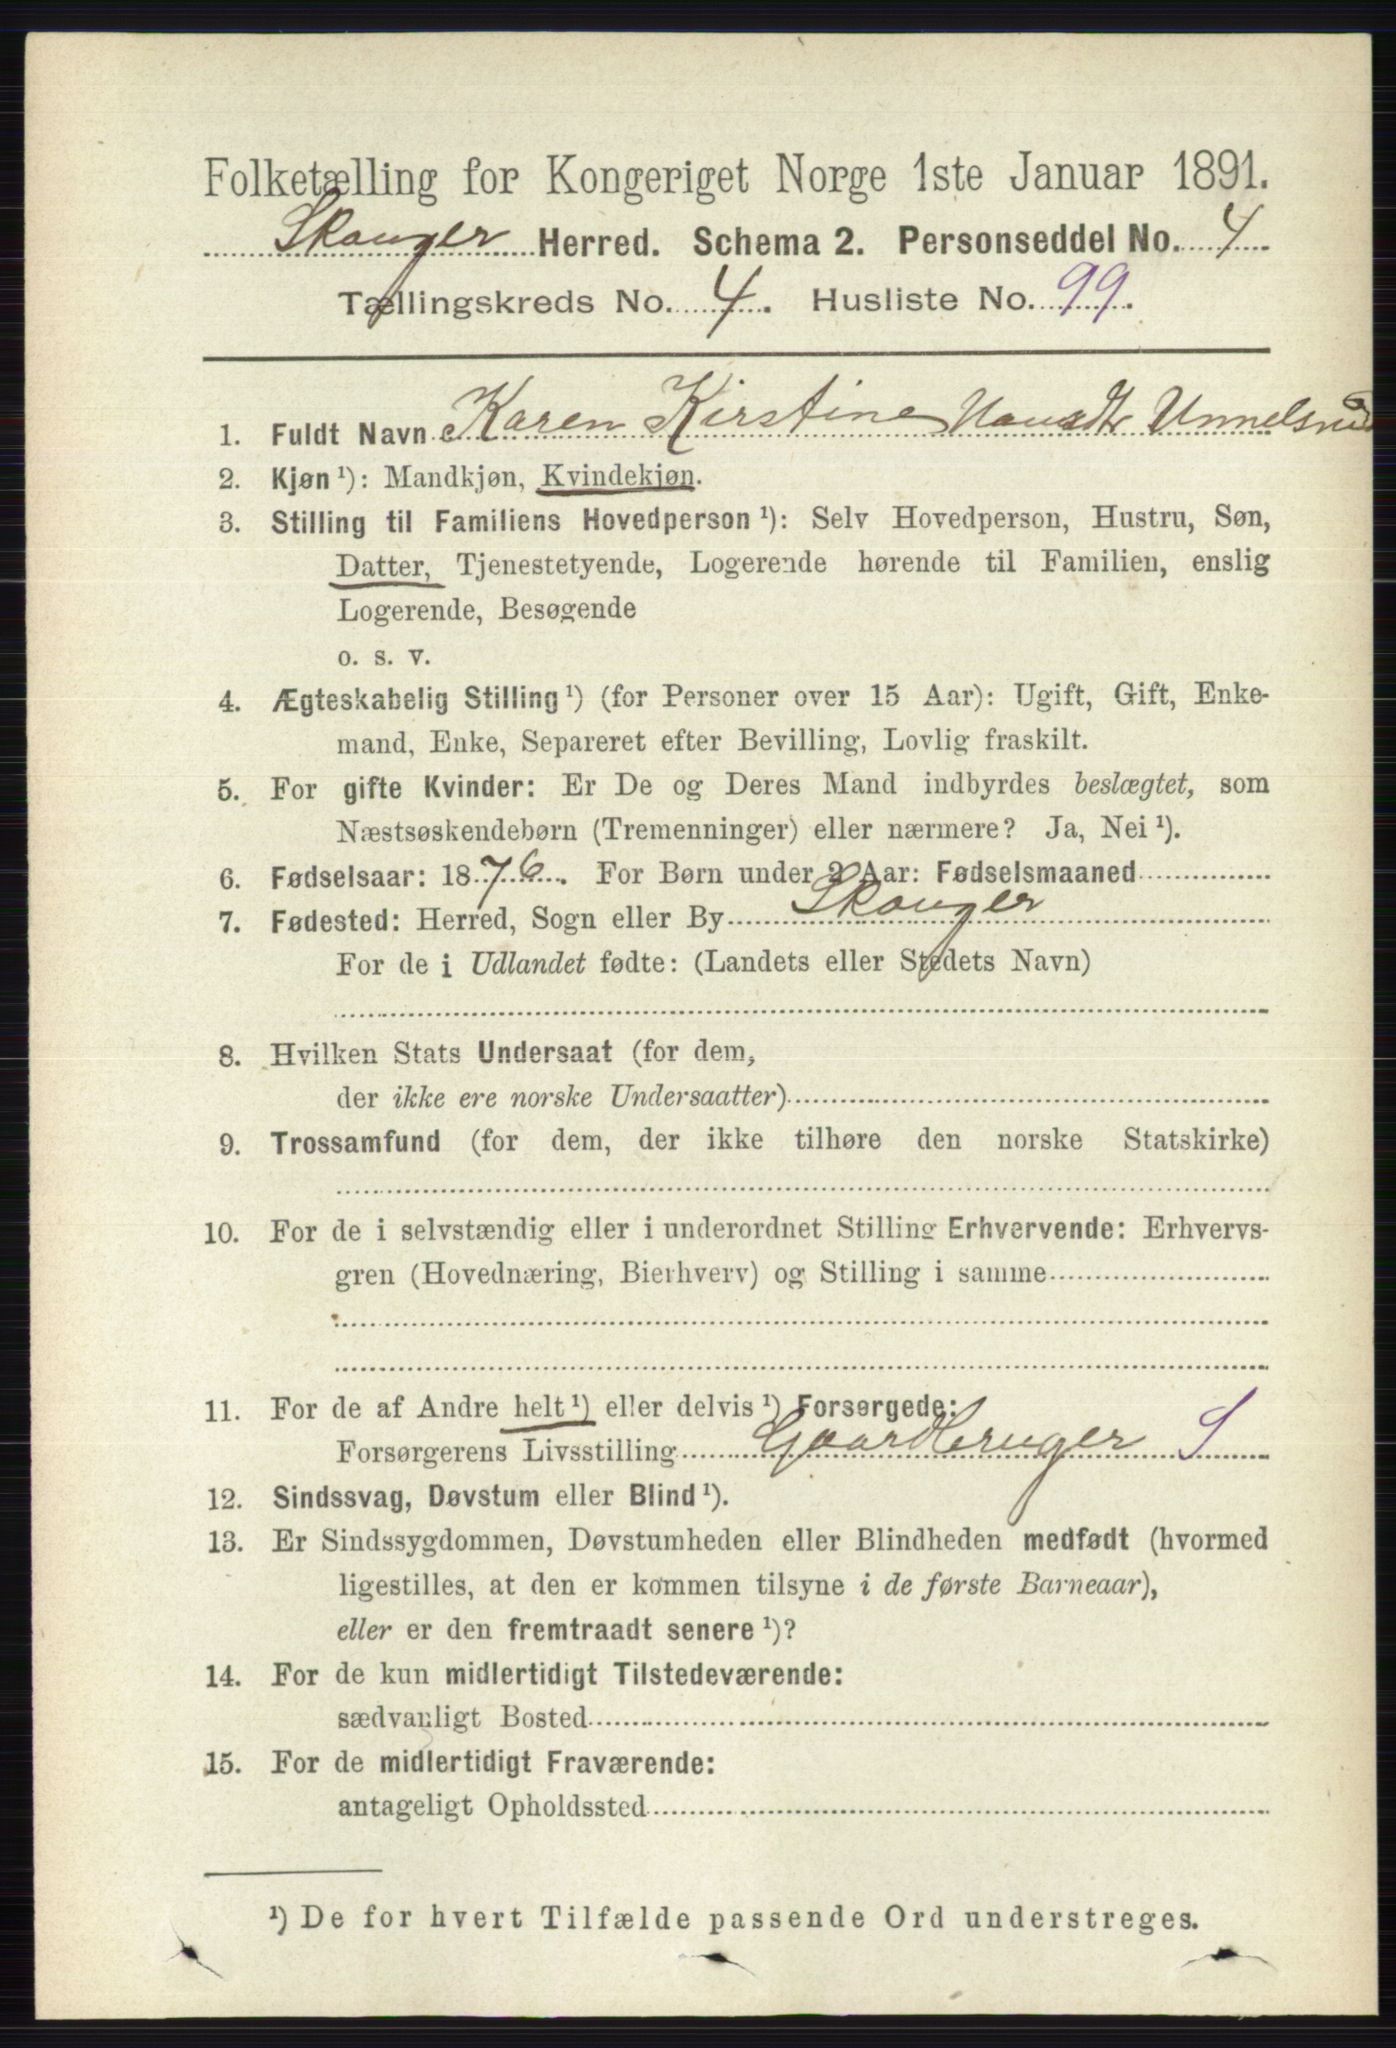 Folketælling for Kongeriget Norge 1ste Januar 1891.
Skouger Herred. Schema 2. Personseddel No. 4
Tællingskreds No. 4. Husliste No. 99.
1. Fuldt Navn Karen Kirstine Unnelsrud
2. Kjøn ¹): Mandkjøn, Kvindekjøn.
3. Stilling til Familiens Hovedperson ¹): Selv Hovedperson, Hustru, Søn,
Datter, Tjenestetyende, Logerende hørende til Familien, enslig
Logerende, Besøgende
o. s. v.
4. Ægteskabelig Stilling ¹) (for Personer over 15 Aar): Ugift, Gift, Enke-
mand, Enke, Separeret efter Bevilling, Lovlig fraskilt.
5. For gifte Kvinder: Er De og Deres Mand indbyrdes beslægtet, som
Næstsøskendebørn (Tremenninger) eller nærmere? Ja, Nei ¹).
6. Fødselsaar: 1876. For Børn under 2 Aar: Fødselsmaaned
7. Fødested: Herred, Sogn eller By Skouger
For de i Udlandet fødte: (Landets eller Stedets Navn)
8. Hvilken Stats Undersaat (for dem,
der ikke ere norske Undersaatter)
9. Trossamfund (for dem, der ikke tilhøre den norske Statskirke)
10. For de i selvstændig eller i underordnet Stilling Erhvervende: Erhvervs-
gren (Hovednæring, Bierhverv) og Stilling i samme
11. For de af Andre helt ¹) eller delvis ¹) Forsørgede:
Forsørgerens Livsstilling Gaardbruger S
12. Sindssvag, Døvstum eller Blind ¹).
13. Er Sindssygdommen, Døvstumheden eller Blindheden medfødt (hvormed
ligestilles, at den er kommen tilsyne i de første Barneaar),
eller er den fremtraadt senere ¹)?
14. For de kun midlertidigt Tilstedeværende:
sædvanligt Bosted
15. For de midlertidigt Fraværende:
antageligt Opholdssted
¹) De for hvert Tilfælde passende Ord understreges.